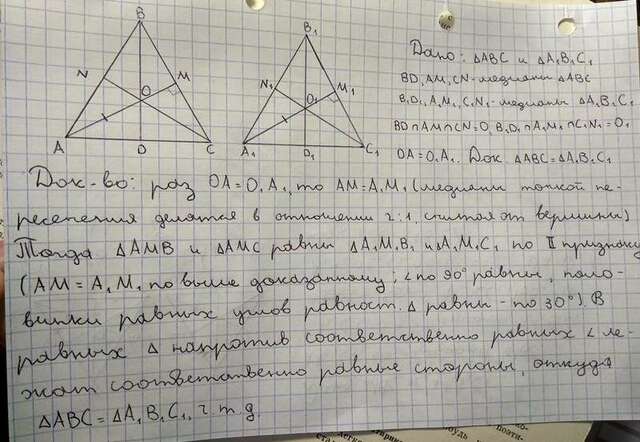 B
N
M
O
A
D
C
B₁
N₁
M₁
O₁
A₁
D₁
C₁
Дано: △ABC и △A₁B₁C₁
BD, AM, CN - медианы △ABC
B₁D₁, A₁M₁, C₁N₁ - медианы △A₁B₁C₁
BD∩AM∩CN=O, B₁D₁∩A₁M₁∩C₁N₁=O₁
OA=O₁A₁. Док. △ABC=△A₁B₁C₁
Док-во: раз OA=O₁A₁, то AM=A₁M₁ (медианы точкой пе-
ресечения делятся в отношении 2:1, считая от вершины)
Тогда △AMB и △AMC равны △A₁M₁B₁ и △A₁M₁C₁ по II признаку
(AM=A₁M₁ по выше доказанному; ∠ по 90° равны, поло-
винки равных углов равност. △ равны - по 30°). В
равных △ напротив соответственно равных ∠ ле-
жат соответственно равные стороны, откуда
△ABC=△A₁B₁C₁, ч.т.д.